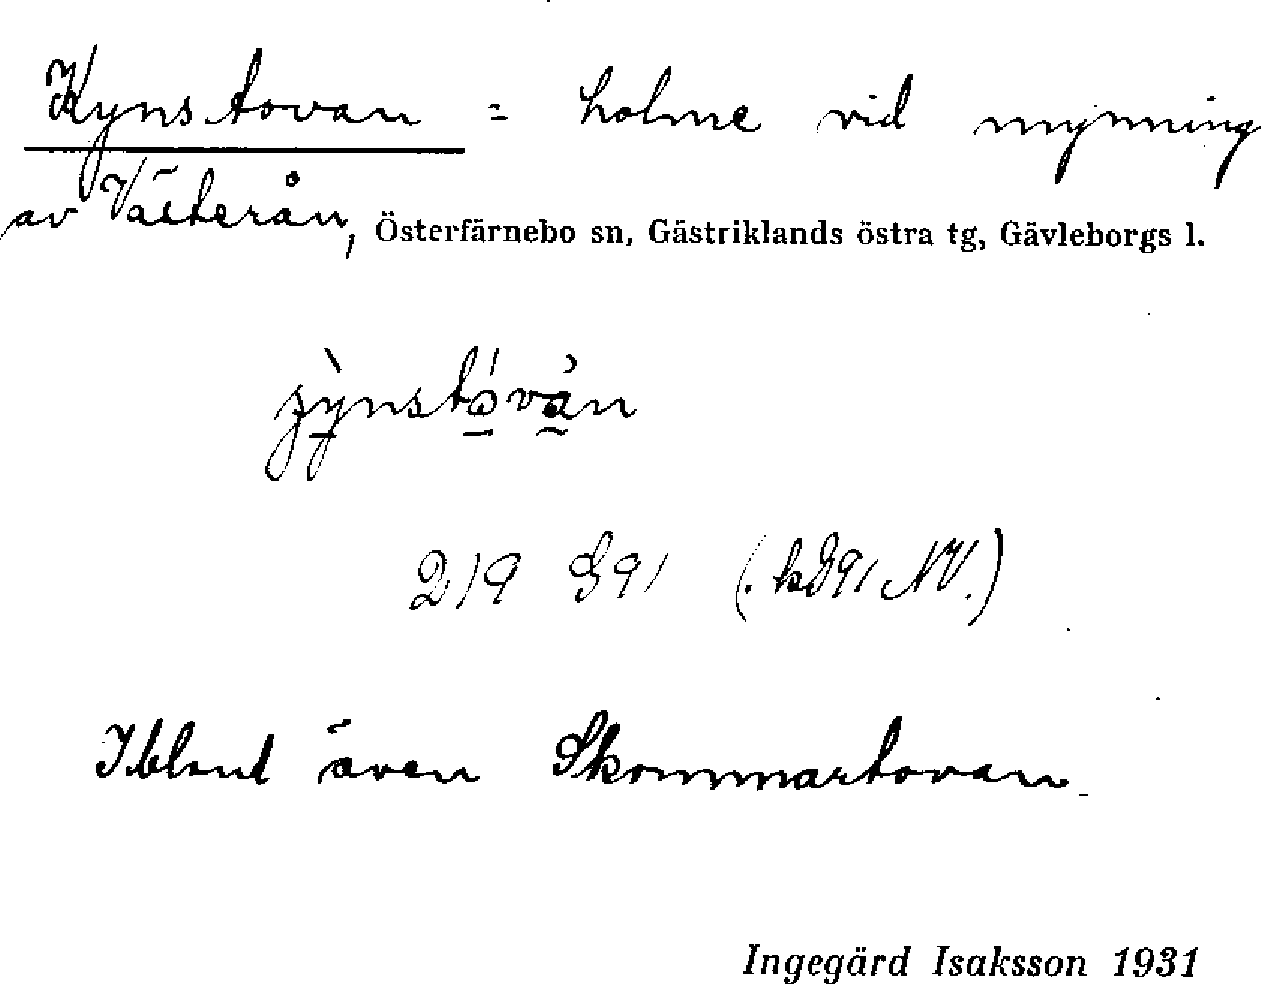 Kynstovan = holme vid mynning
av Västerån, Österfärnebo sn, Gästriklands östra tg, Gävleborgs l.
219 G91
Ibland även Skommartovan.
Ingegärd Isaksson 1931